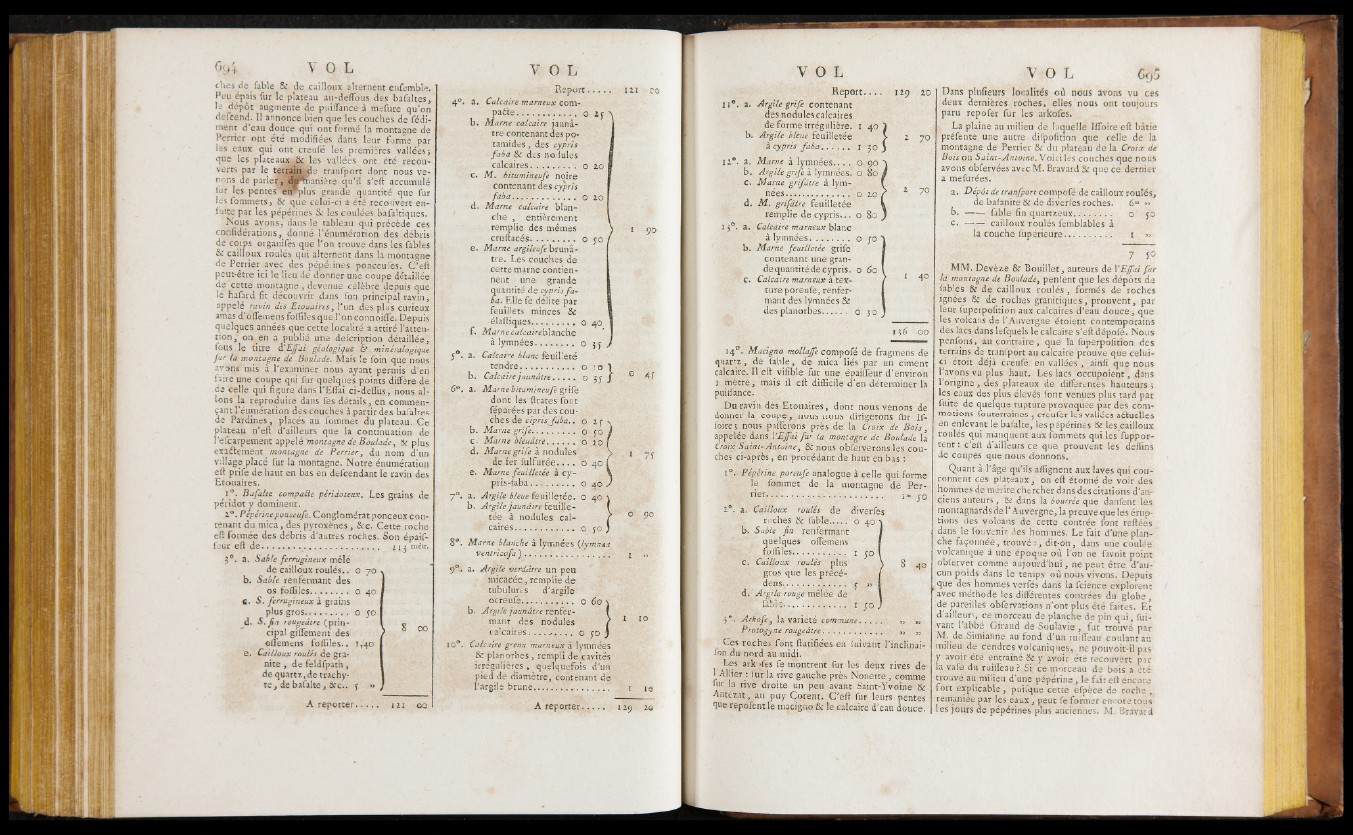 694 VOL
ches de sable & de cailloux alternent ensemble.
Peu épais sur le plateau au-dessous des basaltes,
le dépôt augmente de puissance à mesure qu'on
descend. Il annonce bien que les couches de sédi-
ment d'eau douce qui ont formé la montagne de
Perrier ont été modifiées dans leur forme par
les eaux qui ont creusé les premières vallées;
que les plateaux & les vallées ont été recou-
verts par le terrain de transport dont nous ve-
nons de parler, de manière qu'il s'est accumulé
sur les pentes en plus grande quantité que sur
les sommets, & que celui-ci a été recouvert en-
suite par les pépérines & les coulées basaltiques.
Nous avons, dans le tableau qui précède ces
considérations, donné l'énumération des débris
de corps organisés que l'on trouve dans les sables
& cailloux roulés qui alternent dans la montagne
de Perrier avec des pépérines ponceuses. C'est
peut-être ici le lieu de donner une coupe détaillée
de cette montagne, devenue célèbre depuis que
le hasard fit découvrir dans son principal ravin,
appelé ravin des Etouaires, l'un des plus curieux
amas d'ossemens fossiles que l'on connoisse. Depuis
quelques années que cette localité a attiré l'atten-
tion, on en a publié une description détaillée,
sous le titre d'Essai géologique & minéralogique
sur la montagne de Boulade. Mais le soin que nous
avons mis à l'examiner nous ayant permis d'en
faire une coupe qui sur quelques points diffère de
de celle qui figure dans l'Essai ci-dessus, nous al-
lons la reproduire dans ses détails, en commen-
çant l'énumération des couches à partir des basaltes
de Pardines, placés au sommet du plateau. Ce
plateau n'est d'ailleurs que la continuation de
l'escarpement appelé montagne de Boulade, & plus
exactement montagne de Perrier, du nom d'un
village placé sur la montagne. Notre énumération
est prise de haut en bas en descendant le ravin des
Etouaires.
1°. Basalte compacte péridoteux. Les grains de
péridot y dominent.
2°. Pépérine ponceuse. Conglomérat ponceux con-
tenant du mica, des pyroxènes, &c. Cette roche
est formée des débris d'autres roches. Son épais-
seur est de.................... 113 mètr.
3°. a. Sable ferrugineux mêlé
de cailloux roulés.. 0 70
b. Sable renfermant des
os fossiles......... 0 40
c. S. ferrugineux à grains
plus gros......... 0 50
d. S. fin rougeâtre (prin-
cipal gissement des
ossemens fossiles.. 1,40
8 00
e. Cailloux roulés de gra-
nite, de feldspath,
de quartz, de trachy-
te, de basalte, &c.. 5 »
A reporter..... 121 00
VOL
Report..... 121 00
4°. a. Calcaire marneux com-
pacte............ 0 25
b. Marne calcaire jaunâ-
tre contenant des po-
tamides, des cypris
faba & des nodules
calcaires......... 0 20
c. M. bitumineuse noire
contenant des cypris
faba............. 0 20
d. Marne calcaire blan-
che, entièrement
remplie des mêmes
crustacés......... 0 50
1 90
e. Marne argileuse brunâ-
tre. Les couches de
cette marne contien-
nent une grande
quantité de cypris fa-
ba. Elle se délite par
feuillets minces &
élastiques......... 0 40
f. Marne calcaire blanche
à lymnées........ 0 35
5°. a. Calcaire blanc feuilleté
tendre........... 0 10
b. Calcaire jaunâtre..... 0 35
0 45
6°. a. Marne bitumineuse grise
dont les strates sont
séparées par des cou-
ches de cypris faba.. 0 25
b. Marne grise......... 0 50
c. Marne bleuâtre...... 0 20
d. Marne grise à nodules
de fer sulfuré.... 0 40
1 75
e. Marne feuilletée à cy-
pris-faba......... 0 40
7°. a. Argile bleue feuilletée. 0 40
b. Argile jaunâtre feuille-
tée à nodules cal-
caires............ 0 50
0 90
8°. Marne blanche à lymnées (lymnæa
ventricosa)................ 1 »
9°. a. Argile verdâtre un peu
micacée, remplie de
tubulures d'argile
ocreuse.......... 0 60
b. Argile jaunâtre renfer-
mant des nodules
calcaires......... 0 50
1 10
10°. Calcaire grenu marneux à lymnées
& planorbes, rempli de cavités
irrégulières, quelquefois d'un
pied de diamètre, contenant de
l'argile brune............... 1 10
A reporter..... 129 20
VOL
Report.... 129 20
11°. a. Argile grise contenant
des nodules calcaires
de forme irrégulière. 1 40
b. Argile bleue feuilletée
à cypris faba...... 1 30
2 70
12°. a. Marne à lymnées.... 0 90
b. Argile grise à lymnées. 0 80
c. Marne grisâtre à lym-
nées............. 0 20
2 70
d. M. grisâtre feuilletée
remplie de cypris... 0 80
13°. a. Calcaire marneux blanc
à lymnées........ 0 50
b. Marne feuilletée grise
contenant une gran-
de quantité de cypris. 0 60
1 40
c. Calcaire marneux à tex-
ture poreuse, renfer-
mant des lymnées &
des planorbes...... 0 30
136 00
14°. Macigno mollasse composé de fragmens de
quartz, de sable, de mica liés par un ciment
calcaire. Il est visible sur une épaisseur d'environ
1 mètre, mais il est difficile d'en déterminer la
puissance.
Du ravin des Etouaires, dont nous venons de
donner la coupe, nous nous dirigerons sur Is-
soire; nous passerons près de la Croix de Bois,
appelée dans l'Essai sur la montagne de Boulade la
Croix Saint-Antoine, & nous observerons les cou-
ches ci-après, en procédant de haut en bas:
1°. Pépérine poreuse analogue à celle qui forme
le sommet de la montagne de Per-
rier........................ 1m 50
2°. a. Cailloux roulés de diverses
roches & sable..... 0 40
b. Sable fin renfermant
quelques ossemens
fossiles........... 1 50
c. Cailloux roulés plus
gros que les précé-
dens............. 5 »
8 40
d. Argile rouge mêlée de
sable............. 1 50
3°. Arkose, la variété commune..... » »
Protogyne rougeâtre............ » »
Ces roches sont stratifiées en suivant l'inclinai-
son du nord au midi.
Les arkoses se montrent sur les deux rives de
l'Allier: sur la rive gauche près Nonette, comme
sur la rive droite un peu avant Saint-Yvoine &
Antezat, au puy Corent. C'est sur leurs pentes
que reposent le macigno & le calcaire d'eau douce.
VOL 695
Dans plusieurs localités où nous avons vu ces
deux dernières roches, elles nous ont toujours
paru reposer sur les arkoses.
La plaine au milieu de laquelle Issoire est bâtie
présente une autre disposition que celle de la
montagne de Perrier & du plateau de la Croix de
Bois ou Saint-Antoine. Voici les couches que nous
avons observées avec M. Bravard & que ce dernier
a mesurées.
a. Dépôt de transport composé de cailloux roulés,
de basanite & de diverses roches. 6m »
b. —— sable fin quartzeux........ 0 50
c. —— cailloux roulés semblables à
la couche supérieure.......... 1 »
7 50
MM. Devèze & Bouillet, auteurs de l'Essai sur
la montagne de Boulade, pensent que les dépôts de
sables & de cailloux roulés, formés de roches
ignées & de roches granitiques, prouvent, par
leur superposition aux calcaires d'eau douce, que
les volcans de l'Auvergne étoient contemporains
des lacs dans lesquels le calcaire s'est déposé. Nous
pensons, au contraire, que la superposition des
terrains de transport au calcaire prouve que celui-
ci étoit déjà creusé en vallées, ainsi que nous
l'avons vu plus haut. Les lacs occupoient, dans
l'origine, des plateaux de différentes hauteurs;
les eaux des plus élevés sont venues plus tard par
suite de quelque rupture provoquée par des com-
motions souterraines, creuser les vallées actuelles
en enlevant le basalte, les pépérines & les cailloux
roulés qui manquent aux sommets qui les suppor-
tent: c'est d'ailleurs ce que prouvent les dessins
de coupes que nous donnons.
Quant à l'âge qu'ils assignent aux laves qui cou-
ronnent ces plateaux, on est étonné de voir des
hommes de mérite chercher dans des citations d'an-
ciens auteurs, & dans la bourrée que dansent les
montagnards de l'Auvergne, la preuve que les érup-
tions des volcans de cette contrée sont restées
dans le souvenir des hommes. Le fait d'une plan-
che façonnée, trouvée, dit-on, dans une coulée
volcanique à une époque où l'on ne savoit point
observer comme aujourd'hui, ne peut être d'au-
cun poids dans le temps où nous vivons. Depuis
que des hommes versés dans la science explorent
avec méthode les différentes contrées du globe,
de pareilles observations n'ont plus été faites. Et
d'ailleurs, ce morceau de planche de pin qui, sui-
vant l'abbé Giraud de Soulavie, fut trouvé par
M. de Simianne au fond d'un ruisseau coulant au
milieu de cendres volcaniques, ne pouvoit-il pas
y avoir été entraîné & y avoir été recouvert par
la vase du ruisseau? Si ce morceau de bois a été
trouvé au milieu d'une pépérine, le fait est encore
fort explicable, puisque cette espèce de roche,
remaniée par les eaux, peut se former encore tous
les jours de pépérines plus anciennes. M. Bravard